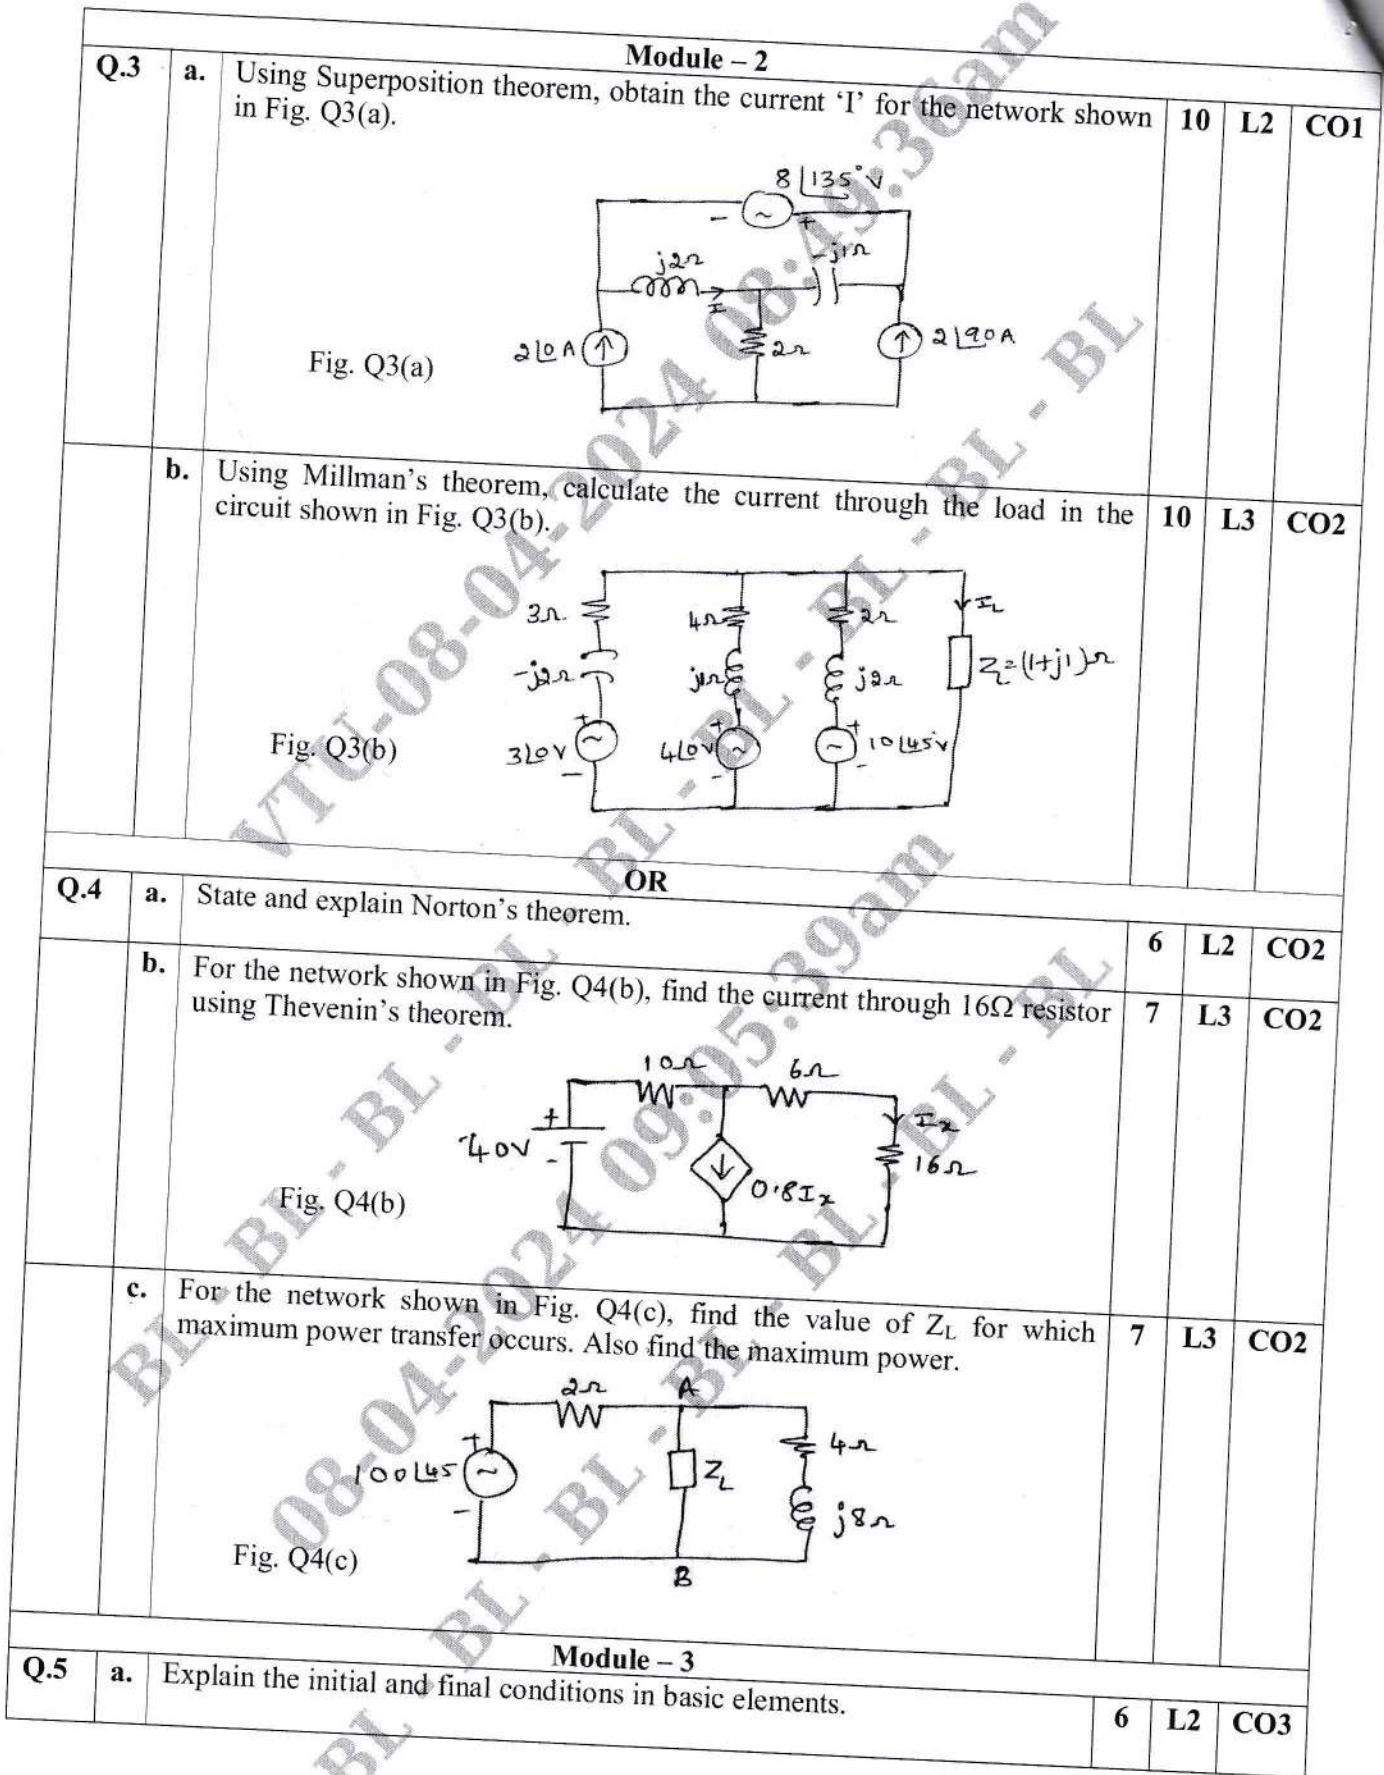 Module – 2
Q.3 a. Using Superposition theorem, obtain the current ‘I’ for the network shown 10 L2 CO1
in Fig. Q3(a).
8∠135°V
- ~ +
j2Ω -j1Ω
I
2∠0 A 2Ω 2∠90 A
Fig. Q3(a)
b. Using Millman’s theorem, calculate the current through the load in the 10 L3 CO2
circuit shown in Fig. Q3(b).
3Ω 4Ω 2Ω I_L
-j2Ω j1Ω j2Ω Z_L=(1+j1)Ω
+ + +
3∠0V ~ 4∠0V ~ ~ 10∠45°V
- - -
Fig. Q3(b)
OR
Q.4 a. State and explain Norton’s theorem. 6 L2 CO2
b. For the network shown in Fig. Q4(b), find the current through 16Ω resistor 7 L3 CO2
using Thevenin’s theorem.
10Ω 6Ω
+ I_x
40V 16Ω
- 0.8I_x
Fig. Q4(b)
c. For the network shown in Fig. Q4(c), find the value of Z_L for which 7 L3 CO2
maximum power transfer occurs. Also find the maximum power.
2Ω A
+ 4Ω
100∠45 ~ Z_L
- j8Ω
Fig. Q4(c)
B
Module – 3
Q.5 a. Explain the initial and final conditions in basic elements. 6 L2 CO3
VTU-08-04-2024 08:49:36am
BL - BL - BL - BL - BL - BL - BL - BL
08-04-2024 09:05:39am
BL - BL - BL - BL - BL - BL